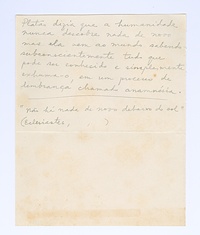 Platão dizia que a humanidade
nunca descobre nada de novo
mas ela vem ao mundo sabendo
subconscientemente tudo que
pode ser conhecido e simplesmente
num processo de
lembrança chamado anamnésia.
"não há nada de novo debaixo do sol"
(Eclesiastes, )